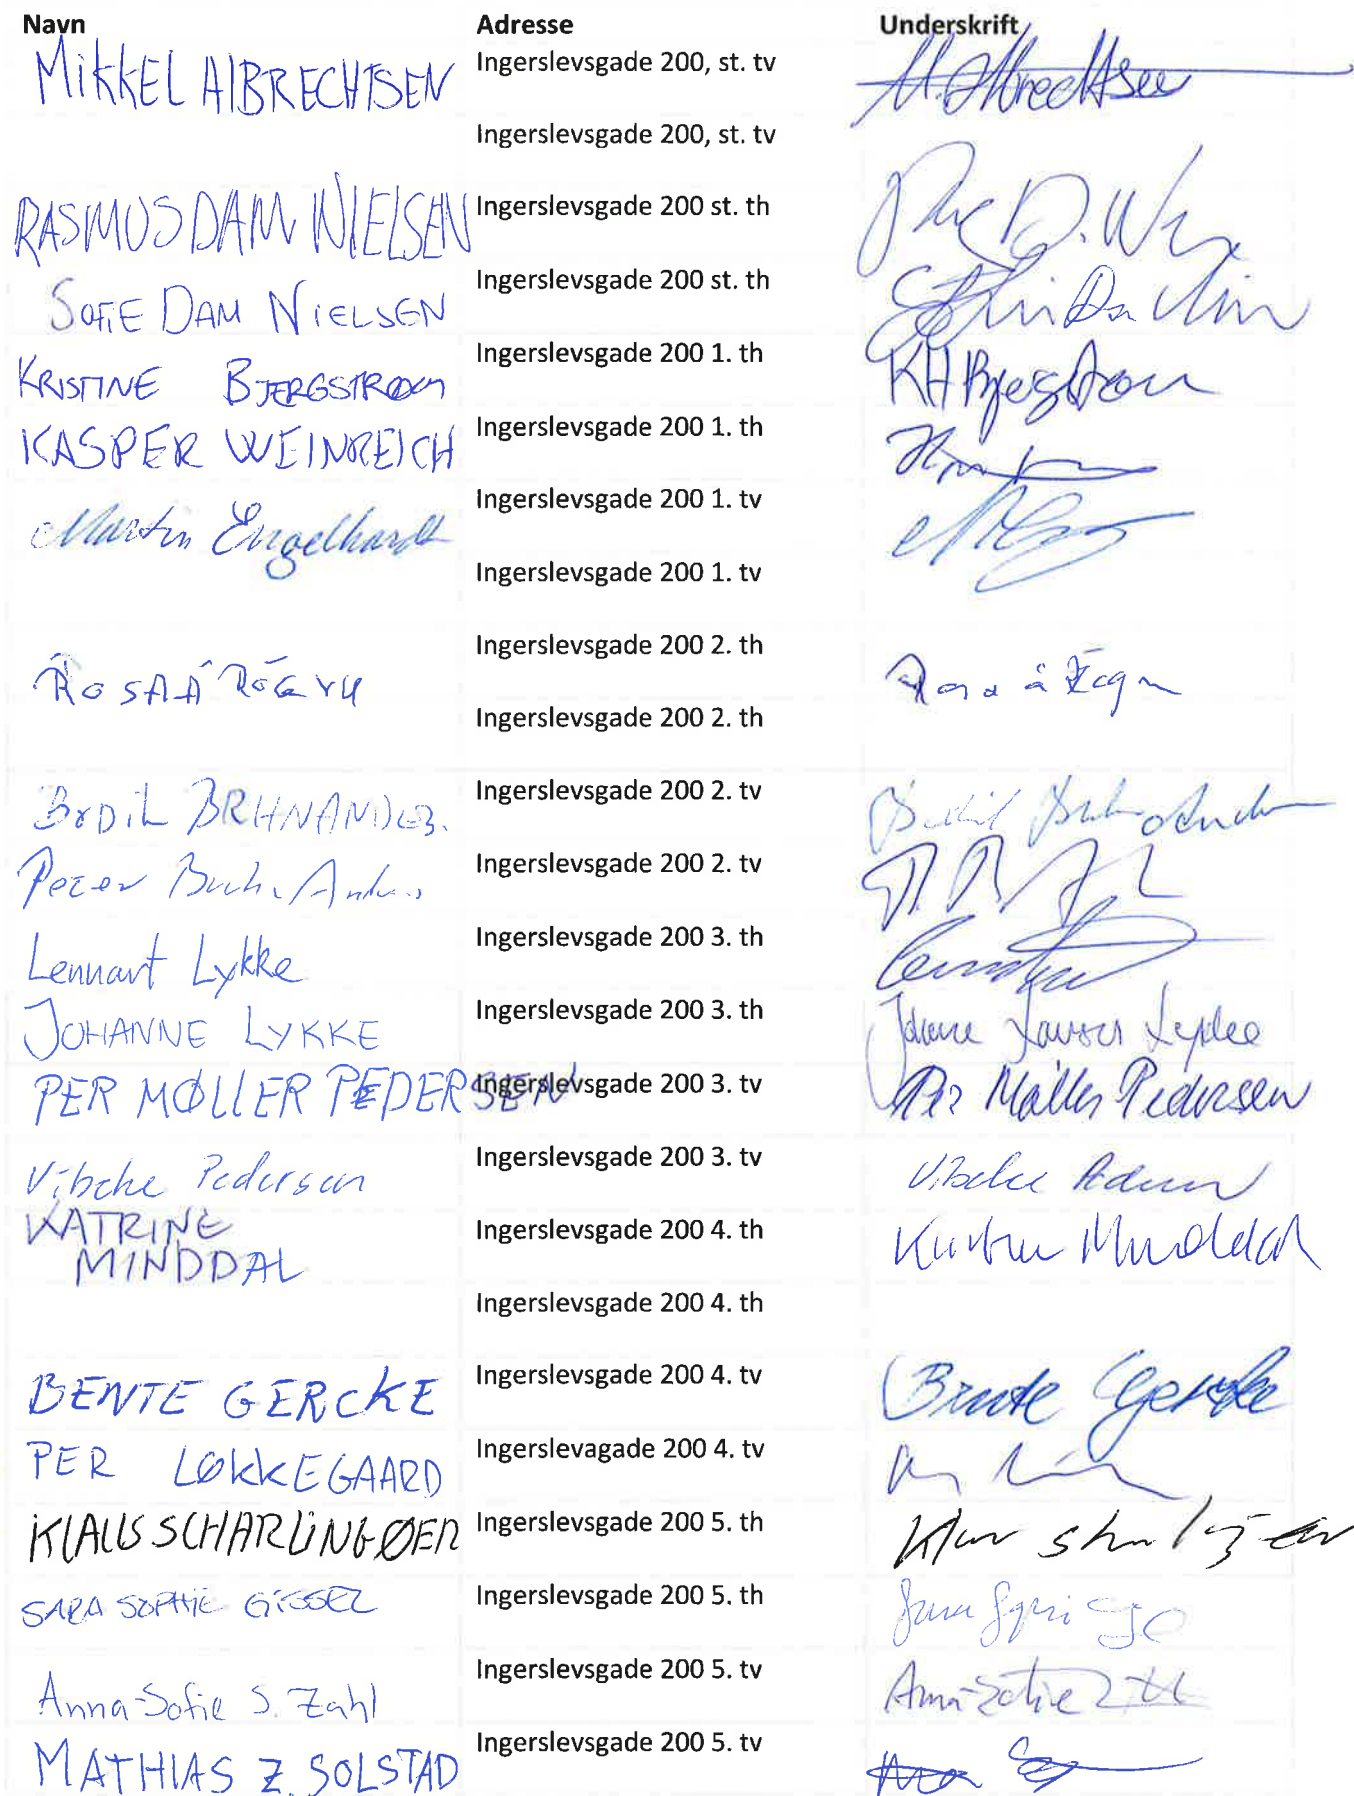 Navn Adresse Underskrift
MIKKEL AlBRECHTSEN Ingerslevsgade 200, st. tv M. Albrechtsen
Ingerslevsgade 200, st. tv
RASMUS DAM NIELSEN Ingerslevsgade 200 st. th
SOFIE DAM NIELSEN Ingerslevsgade 200 st. th
KRISTINE BJERGSTRØM Ingerslevsgade 200 1. th KH Bjergstrøm
KASPER WEINREICH Ingerslevsgade 200 1. th
Martin Engelhardt Ingerslevsgade 200 1. tv
Ingerslevsgade 200 1. tv
ROSA Á RÓGVU Ingerslevsgade 200 2. th Rosa á Rógvu
Ingerslevsgade 200 2. th
BODIL Ingerslevsgade 200 2. tv Bodil
Peter Ingerslevsgade 200 2. tv
Lennart Lykke Ingerslevsgade 200 3. th
JOHANNE LYKKE Ingerslevsgade 200 3. th Johanne Lykke
PER MØLLER PEDERSEN Ingerslevsgade 200 3. tv Per Møller Pedersen
Vibeke Pedersen Ingerslevsgade 200 3. tv Vibeke
KATRINE Ingerslevsgade 200 4. th Katrine Minddal
MINDDAL
Ingerslevsgade 200 4. th
BENTE GERCKE Ingerslevsgade 200 4. tv Bente Gercke
PER LØKKEGAARD Ingerslevagade 200 4. tv
KLAUS SCHARLING ØER Ingerslevsgade 200 5. th
SARA SOPHIE GISSEL Ingerslevsgade 200 5. th
Anna-Sofie S. Zahl Ingerslevsgade 200 5. tv Anna-Sofie
MATHIAS Z. SOLSTAD Ingerslevsgade 200 5. tv